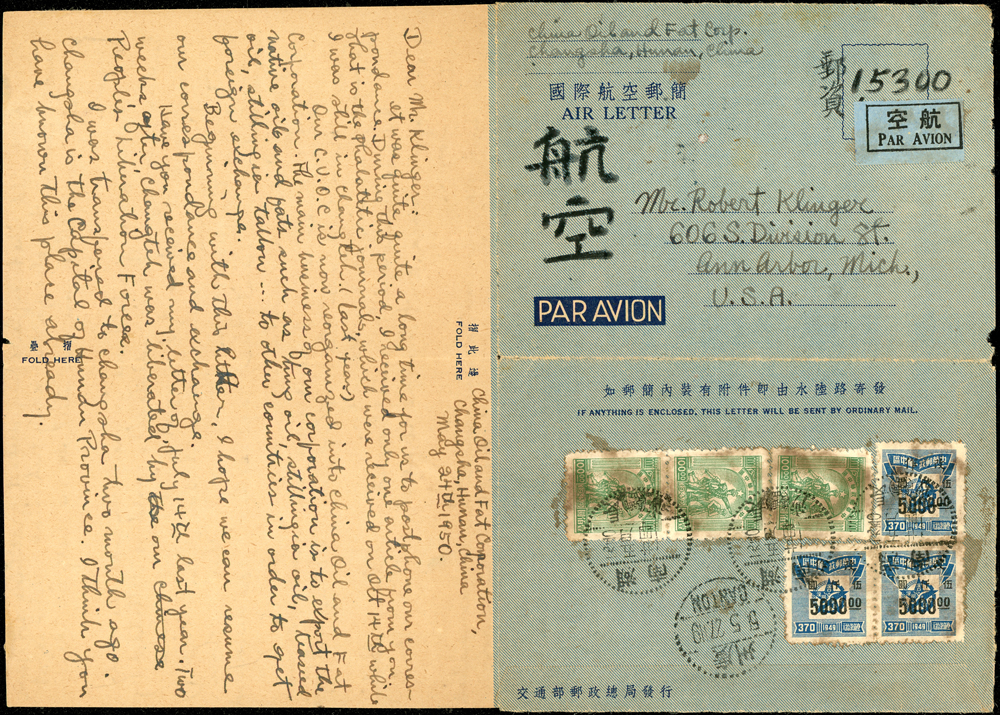 China Oil and Fat Corp.
Changsha, Hunan, China
國際航空郵簡
AIR LETTER
郵資
15300
空航
PAR AVION
航空
Mr. Robert Klinger
606 S. Division St.
Ann Arbor, Mich.,
U.S.A.
PAR AVION
如郵簡內裝有附件即由水陸路寄發
IF ANYTHING IS ENCLOSED, THIS LETTER WILL BE SENT BY ORDINARY MAIL.
5000 00
370 1949
5000 00
370 1949
5000 00
370 1949
CANTON
州廣
交通部郵政總局發行
摺此處
FOLD HERE
FOLD HERE
China Oil and Fat Corporation,
Changsha, Hunan, China
May 24th 1950.
Dear Mr. Klinger:
It was quite quite a long time for us to postphone our corres-
pondance. During this period, I received only one article from you
that is the Phalattic Journals, which were received on Oct 14th while
I was still in Changteh. (last year)
Our C.V.O.C is now reorganized into China Oil and Fat
Corporation. The main business of our corporation is to export the
native oils and fats such as tung oil, stillingia oil, teaseed
oil, stillingia tallow ... to other countries in order to get
foreign exchange.
Beginning with this letter, I hope we can resume
our correspondance and exchange.
Have you received my letter of July 14th last year. Two
weeks after, Changteh was liberated by the our chinese
Peoples Liberation Forces.
I was transpered to Changsha two month ago.
Changsha is the Capital of Hunan Province. I think you
have known this place already.